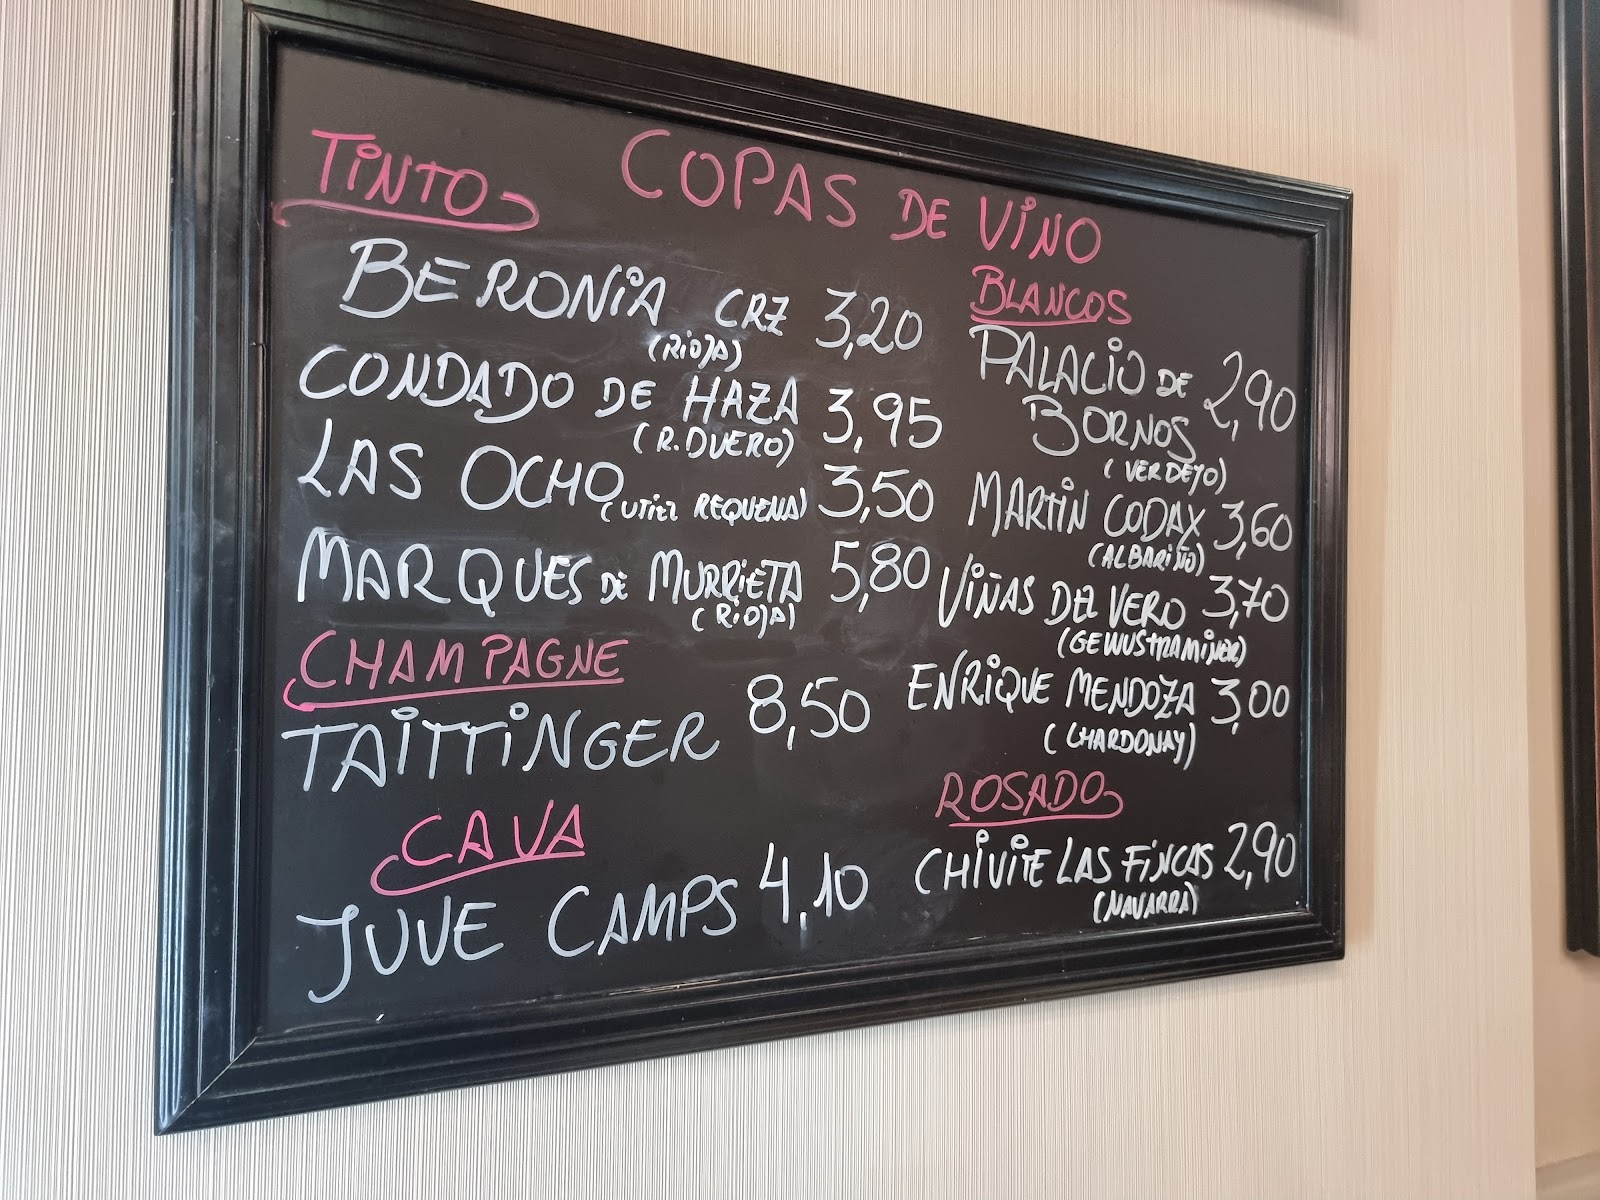 COPAS DE VINO
TINTO
BERONIA CRZ 3,20
(RIOJA)
CONDADO DE HAZA 3,95
(R. DUERO)
LAS OCHO (UTIEL REQUENA) 3,50
MARQUES DE MURRIETA 5,80
(RIOJA)
CHAMPAGNE
TAITTINGER 8,50
CAVA
JUVE CAMPS 4,10
BLANCOS
PALACIO DE 2,90
BORNOS
(VERDEJO)
MARTIN CODAX 3,60
(ALBARIÑO)
VIÑAS DEL VERO 3,70
(GEWUSTRAMINER)
ENRIQUE MENDOZA 3,00
(CHARDONAY)
ROSADO
CHIVITE LAS FINCAS 2,90
(NAVARRA)